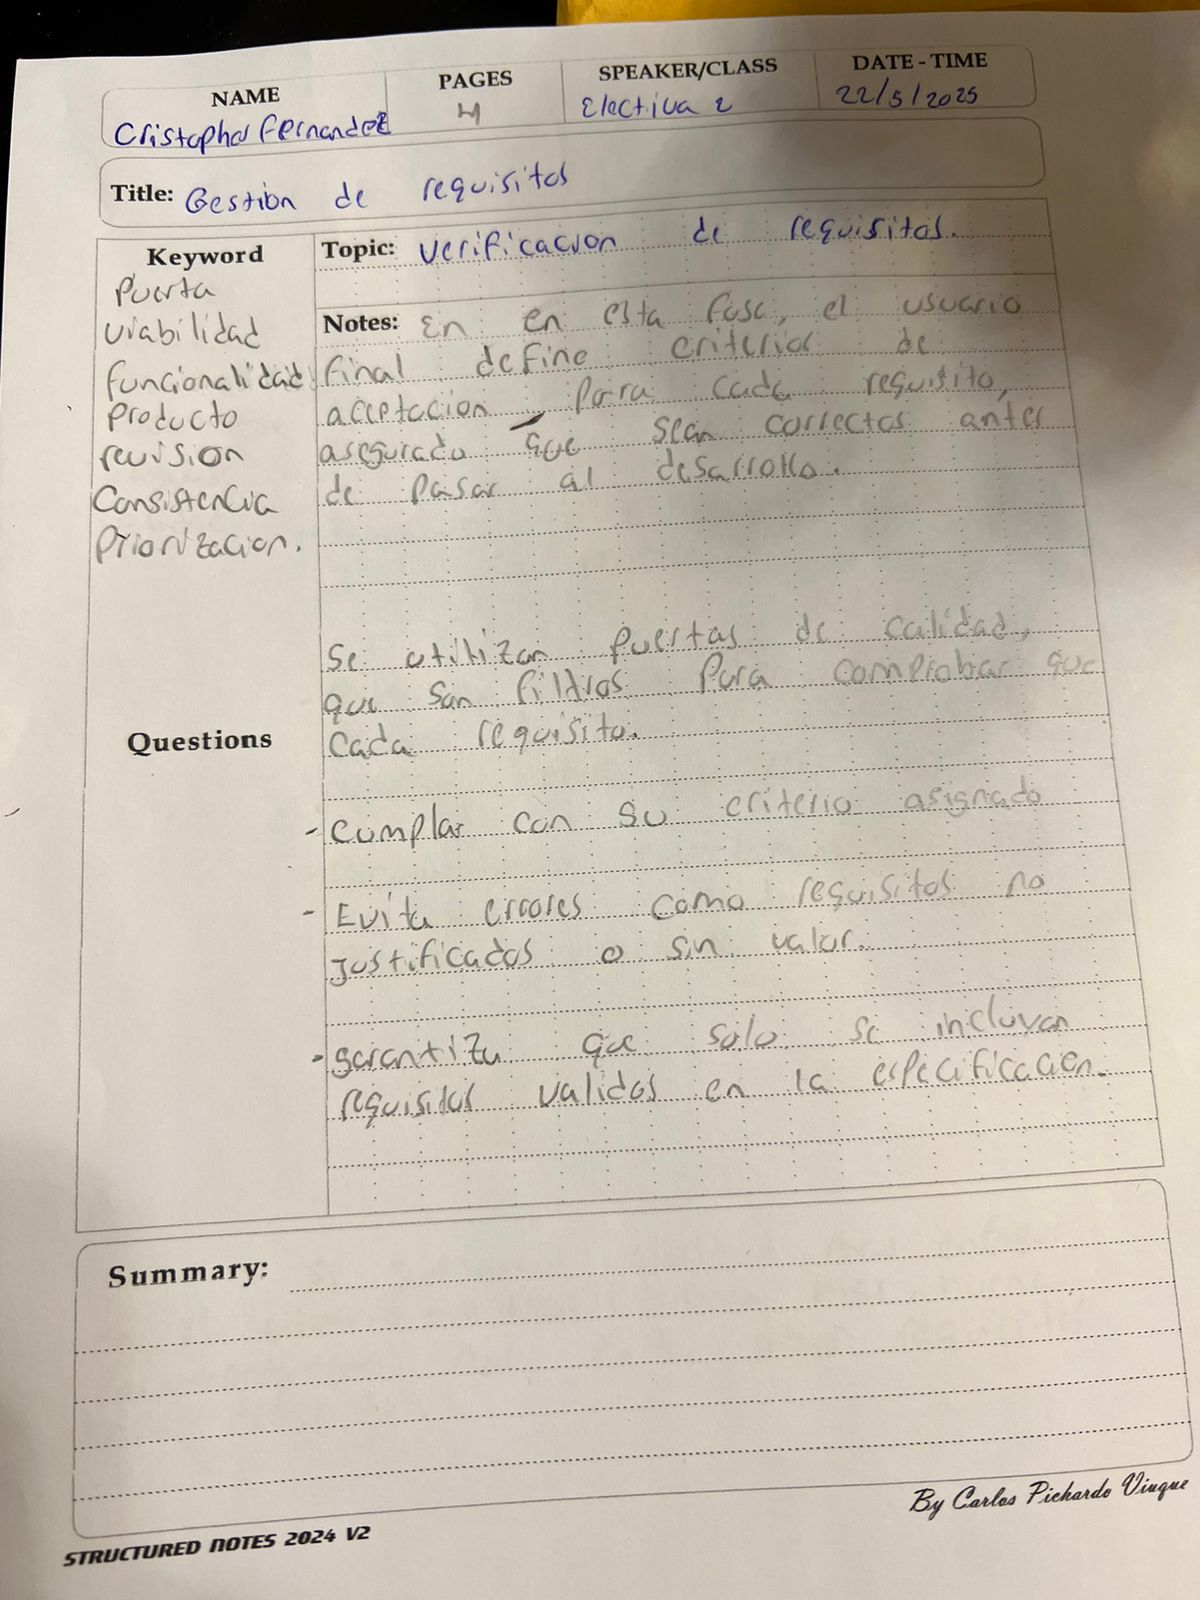 NAME
PAGES
SPEAKER/CLASS
DATE - TIME
Cristopher Fernandez
4
Electiva 2
22/5/2025
Title: Gestion de requisitos
Keyword
Puerta
viabilidad
funcionalidad
Producto
revision
Consistencia
Priorizacion.
Questions
Topic: verificacion de requisitos.
Notes: En en esta fase, el usuario
final define criterios de
aceptacion, para cada requisito,
asegurado que sean correctos antes
de pasar al desarrollo.
Se utilizan puertas de calidad,
que son filtros para comprobar que
cada requisito.
- Cumplar con su criterio asignado
- Evita errores como requisitos no
justificados o sin valor.
- garantiza que solo se incluyan
requisitos validos en la especificacion.
Summary:
By Carlos Pichardo Viuque
STRUCTURED NOTES 2024 V2